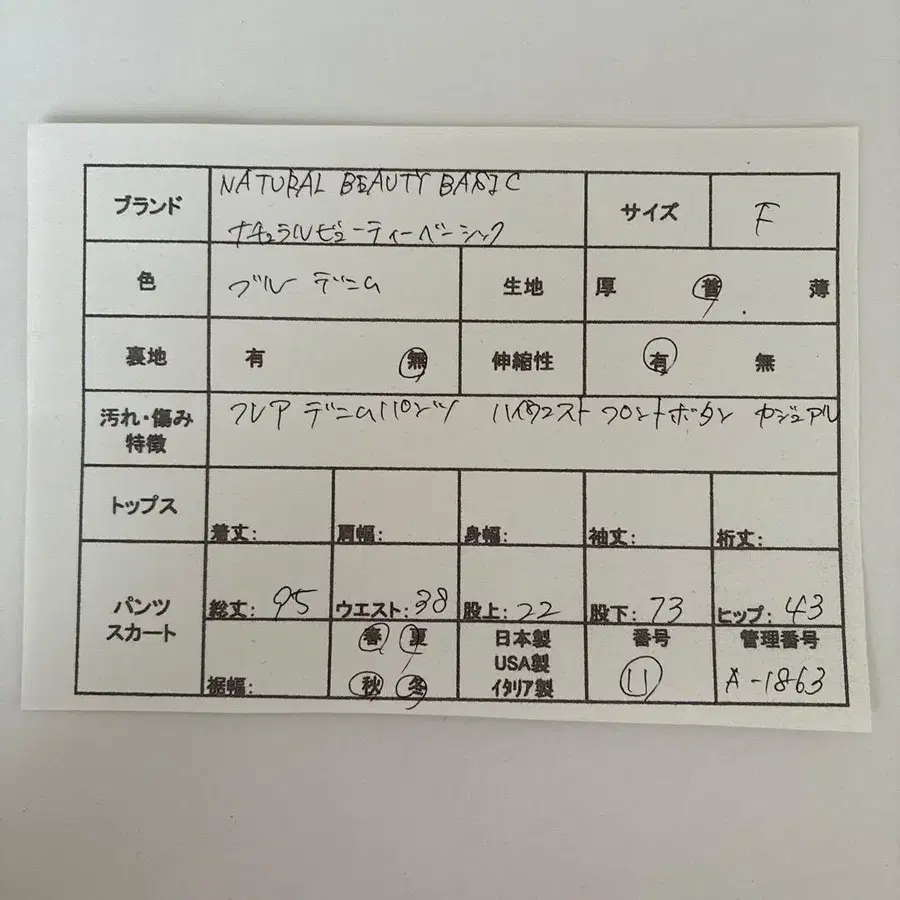 ブランド NATURAL BEAUTY BASIC サイズ F
ナチュラルビューティーベーシック
色 ブルー デニム 生地 厚 普 薄
裏地 有 無 伸縮性 有 無
汚れ・傷み フレア デニムパンツ ハイウエスト フロントボタン カジュアル
特徴
トップス 着丈: 肩幅: 身幅: 袖丈: 裄丈:
パンツ
スカート 総丈: 95 ウエスト: 38 股上: 22 股下: 73 ヒップ: 43
春 夏 日本製 番号 管理番号
USA製
裾幅: 秋 冬 イタリア製 A-1863